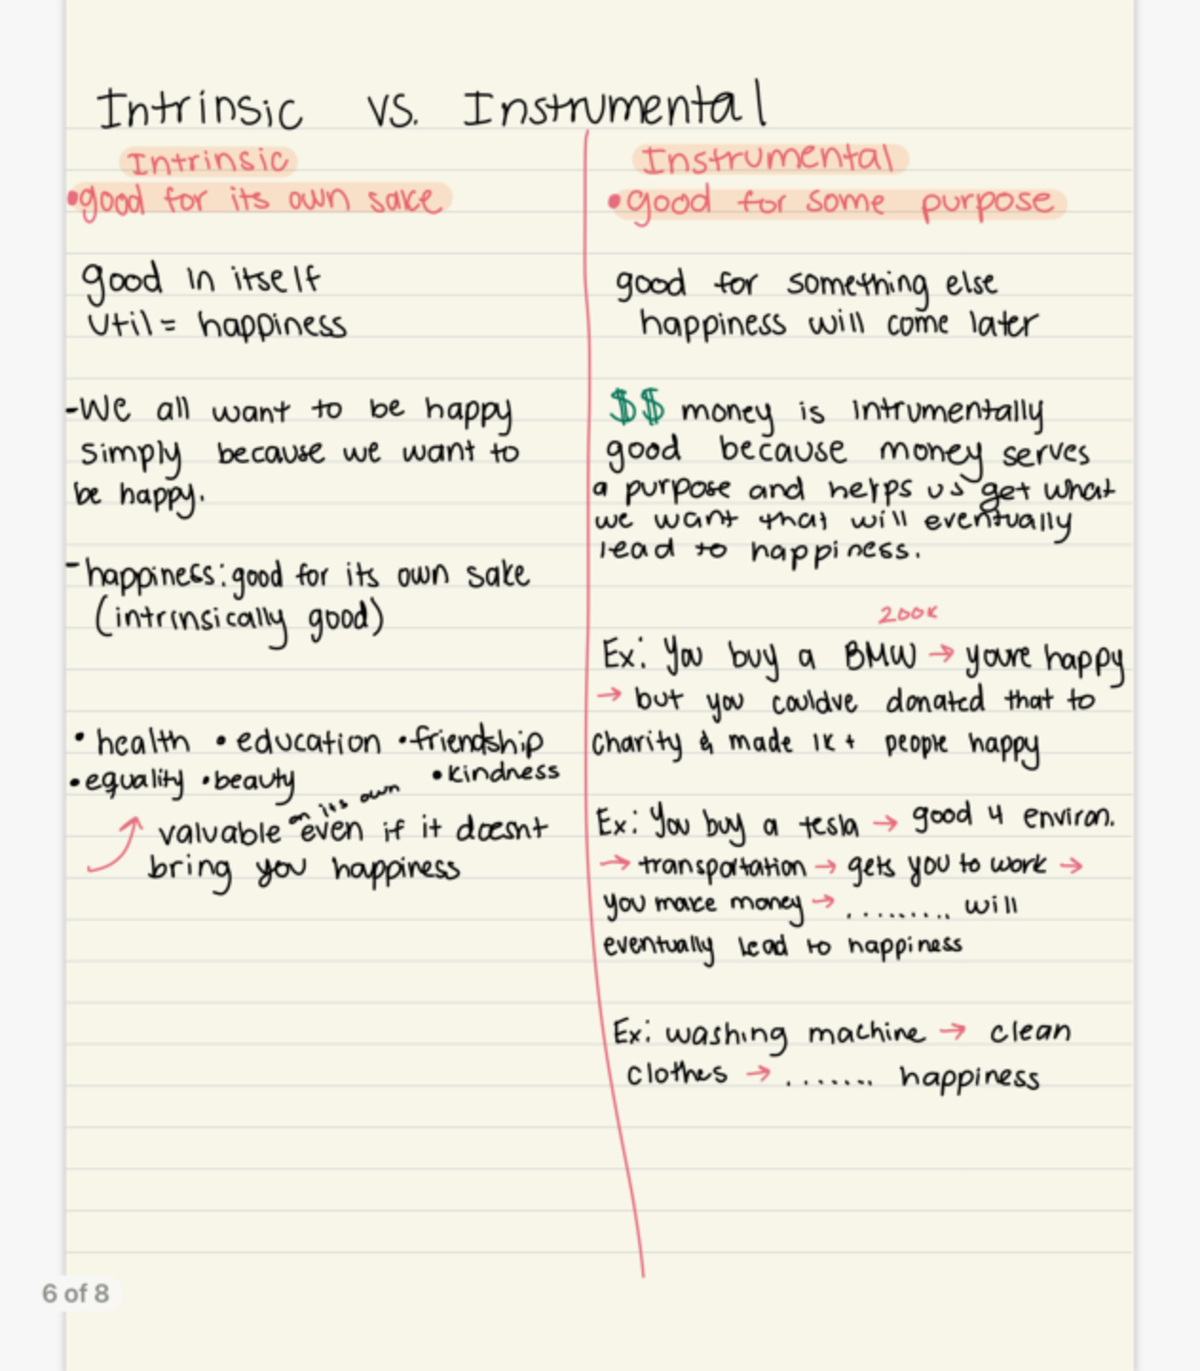 Intrinsic vs. Instrumental
Intrinsic
•good for its own sake
good in itself
Util = happiness
-We all want to be happy
simply because we want to
be happy.
- happiness: good for its own sake
(intrinsically good)
• health • education • friendship
• equality • beauty • kindness
on its own
valuable even if it doesnt
bring you happiness
Instrumental
•good for some purpose
good for something else
happiness will come later
$$ money is intrumentally
good because money serves
a purpose and helps us get what
we want that will eventually
lead to happiness.
200k
Ex: You buy a BMW → youre happy
→ but you couldve donated that to
charity & made 1k+ people happy
Ex: You buy a tesla → good 4 environ.
→ transportation → gets you to work →
you make money → ......... will
eventually lead to happiness
Ex: washing machine → clean
clothes → ....... happiness
6 of 8